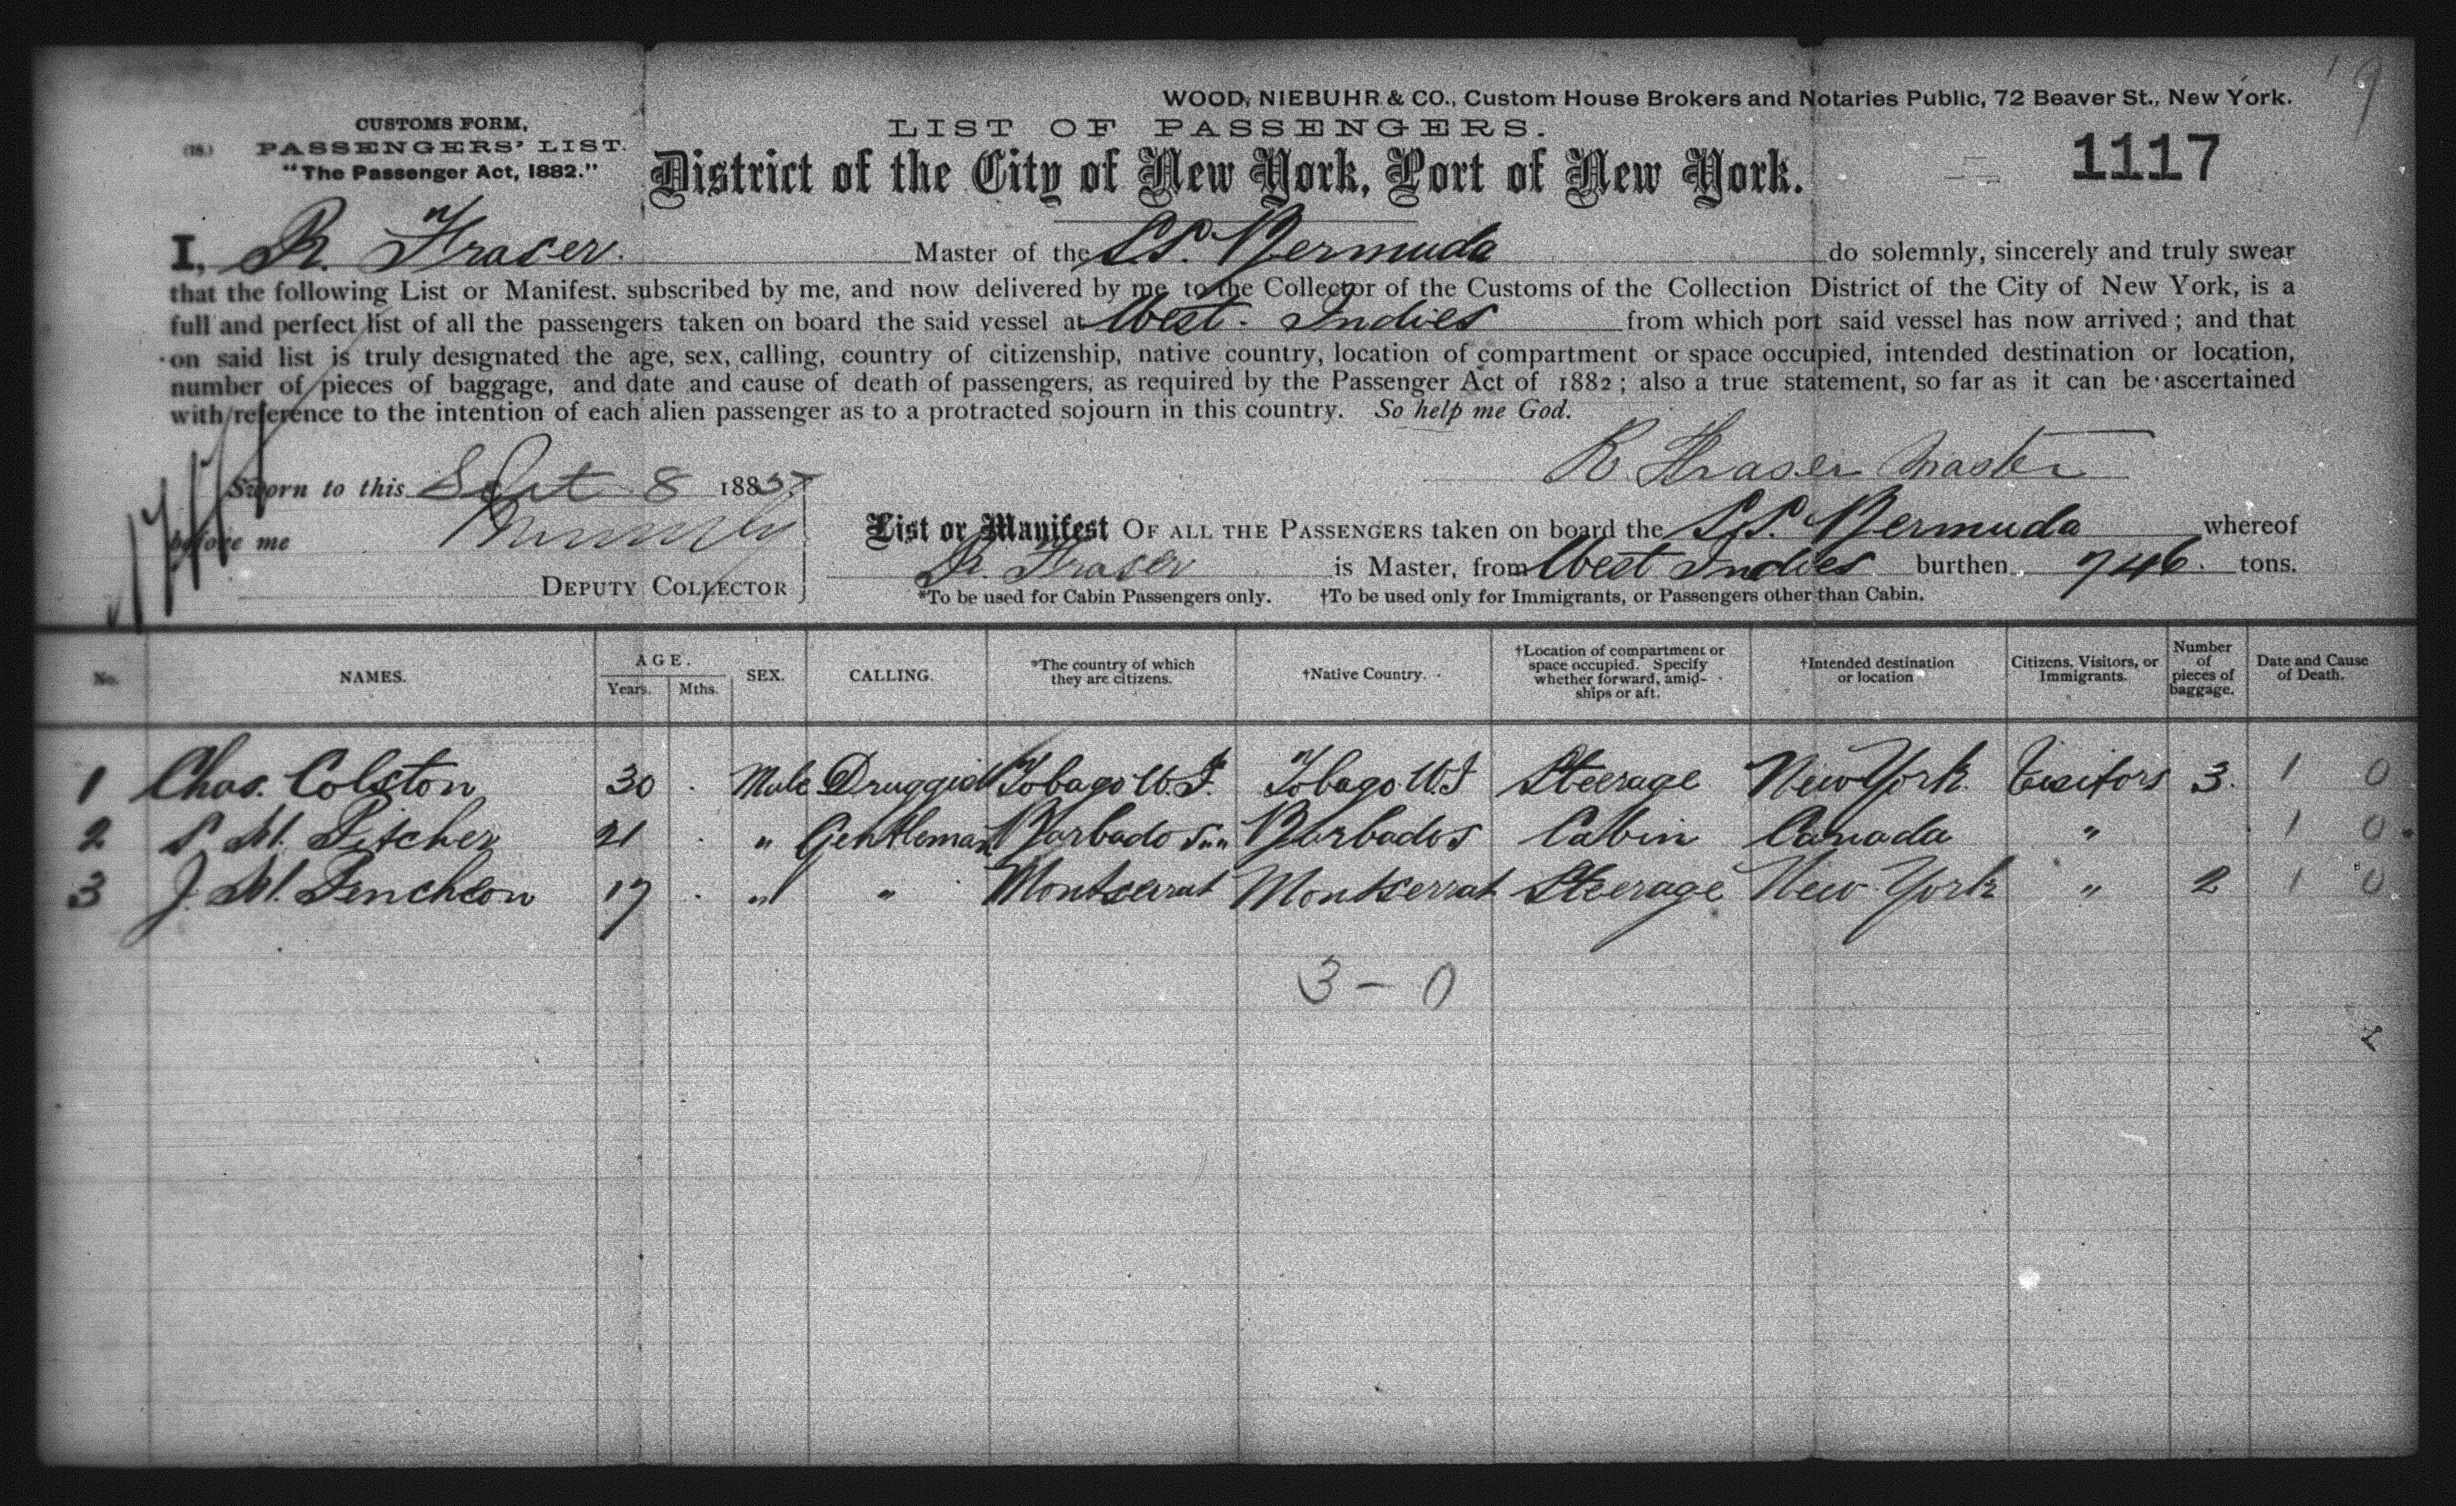 WOOD, NIEBUHR & CO., Custom House Brokers and Notaries Public, 72 Beaver St., New York.
CUSTOMS FORM,
(18.) PASSENGERS' LIST.
"The Passenger Act, 1882."
LIST OF PASSENGERS.
1117
District of the City of New York, Port of New York.
I, R. Fraser. Master of the S.S. Bermuda do solemnly, sincerely and truly swear
that the following List or Manifest, subscribed by me, and now delivered by me to the Collector of the Customs of the Collection District of the City of New York, is a
full and perfect list of all the passengers taken on board the said vessel at West Indies from which port said vessel has now arrived; and that
on said list is truly designated the age, sex, calling, country of citizenship, native country, location of compartment or space occupied, intended destination or location,
number of pieces of baggage, and date and cause of death of passengers, as required by the Passenger Act of 1882; also a true statement, so far as it can be ascertained
with reference to the intention of each alien passenger as to a protracted sojourn in this country. So help me God.
R Fraser Master
Sworn to this Sept 8 1885
before me
DEPUTY COLLECTOR
List or Manifest OF ALL THE PASSENGERS taken on board the S.S. Bermuda whereof
R. Fraser is Master, from West Indies burthen 746. tons.
*To be used for Cabin Passengers only. †To be used only for Immigrants, or Passengers other than Cabin.
No. NAMES. AGE. Years. Mths. SEX. CALLING. *The country of which they are citizens. †Native Country. †Location of compartment or space occupied. Specify whether forward, amidships or aft. †Intended destination or location Citizens, Visitors, or Immigrants. Number of pieces of baggage. Date and Cause of Death.
1 Chas. Colston 30 . Male Druggist Tobago W.I. Tobago W.I Steerage New York. Visitors 3. 1 0
2 S. M. Pitcher 21 . " Gentleman Barbados Barbados Cabin Canada " 1 0
3 J. M. Pencheon 17 . " " Montserrat Montserrat Steerage New York " 2 1 0
3 - 0